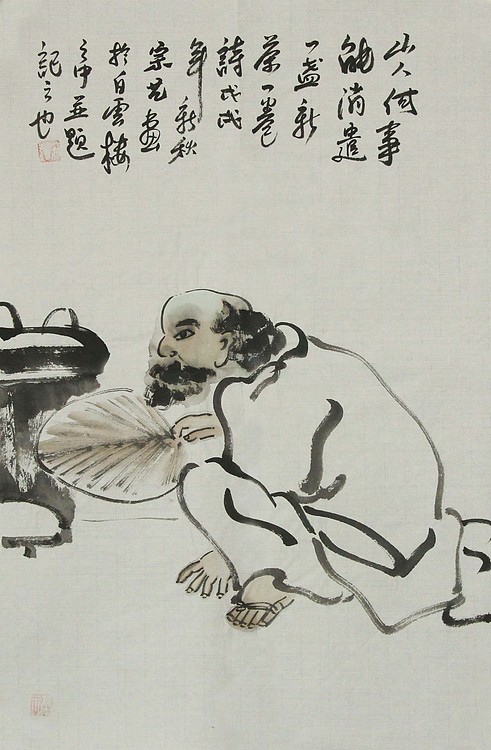 山人何事
能消遣
一盞新
茶一卷
詩戊戌
年新秋
宗畫
於白雲樓
之中並題
記之也